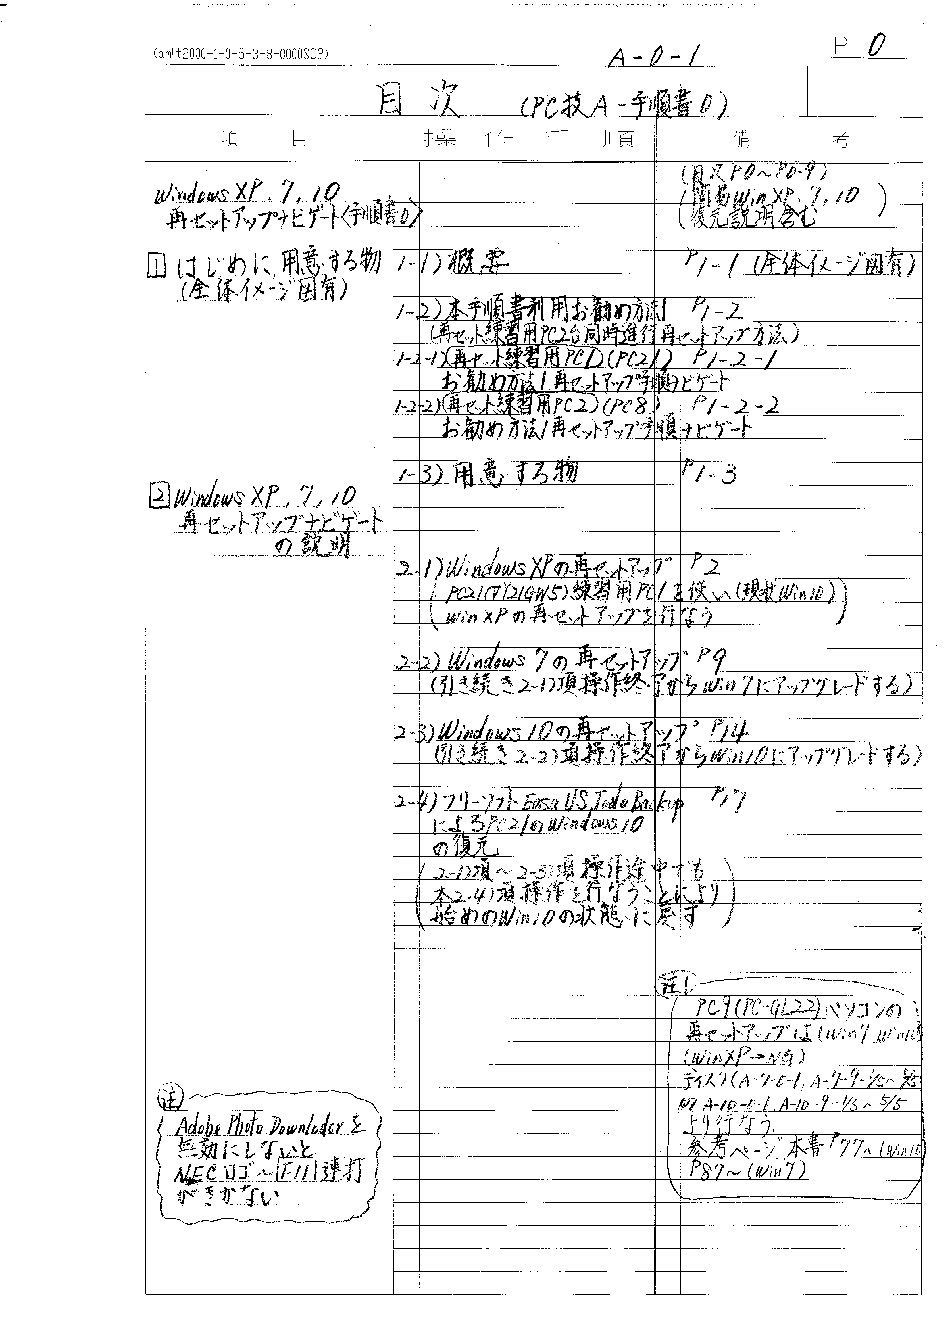 A-0-1
P 0
目次 (PC技A-手順書0)
項 目 操 作 手 順 備 考
(目次P0～P0-9)
Windows XP, 7, 10
(簡易WinXP, 7, 10
再セットアップナビゲート(手順書0)
復元説明含む)
1 はじめに、用意する物 1-1) 概要 P1-1 (全体イメージ図有)
(全体イメージ図有)
1-2) 本手順書利用お勧め方法 P1-2
(再セット練習用PC2台同時進行再セットアップ方法)
1-2-1)(再セット練習用PC1)(PC21) P1-2-1
お勧め方法/再セットアップ手順ナビゲート
1-2-2)(再セット練習用PC2)(PC8) P1-2-2
お勧め方法/再セットアップ手順ナビゲート
1-3) 用意する物 P1-3
2 Windows XP, 7, 10
再セットアップナビゲート
の説明
2-1) Windows XPの再セットアップ P2
練習用PC1を使い(現状Win10)
WinXPの再セットアップを行なう
2-2) Windows 7の再セットアップ P9
(引き続き2-1)項操作終了からWin7にアップグレードする)
2-3) Windows 10の再セットアップ P14
(引き続き2-2)項操作終了からWin10にアップグレードする)
2-4) フリーソフト EaseUS Todo Backup P17
によるPC21のWindows10
の復元
(2-1)項～2-3)項操作途中でも
本2-4)項操作を行なうことにより
始めのWin10の状態に戻す)
注1
PC9(PC-GL22)パソコンの
再セットアップは(Win7, Win10)
(WinXP→NG)
より行なう。
参考ページ 本書P77～(Win10)
P87～(Win7)
注
Adobe Photo Downloaderを
無効にしないと
NECロゴ～[F11]連打
がきかない